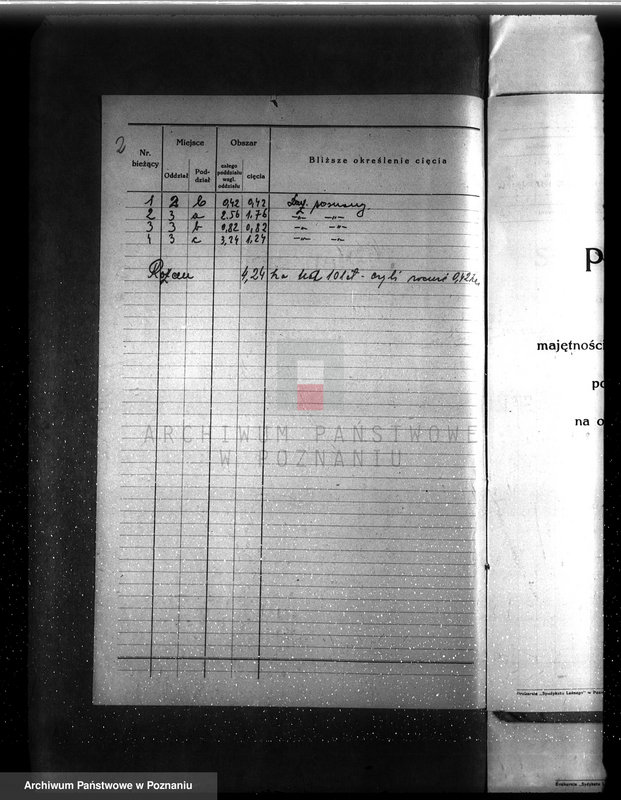 2
Nr. bieżący
Miejsce
Oddział
Poddział
Obszar
całego poddziału wzgl. oddziału
cięcia
Bliższe określenie cięcia
1 2 b 0,42 0,42
2 3 a 2.56 1.76 -„- -„-
3 3 b 0,82 0,82 -„- -„-
4 3 c 3,24 1.24 -„- -„-
Razem 4,24 ha 10 lat - czyli rocznie 0,42 ha
ARCHIWUM PAŃSTWOWE
W POZNANIU
majętności
na o
Drukarnia „Syndykatu Leśnego" w Pozn
Drukarnia „Syndyk
Archiwum Państwowe w Poznaniu